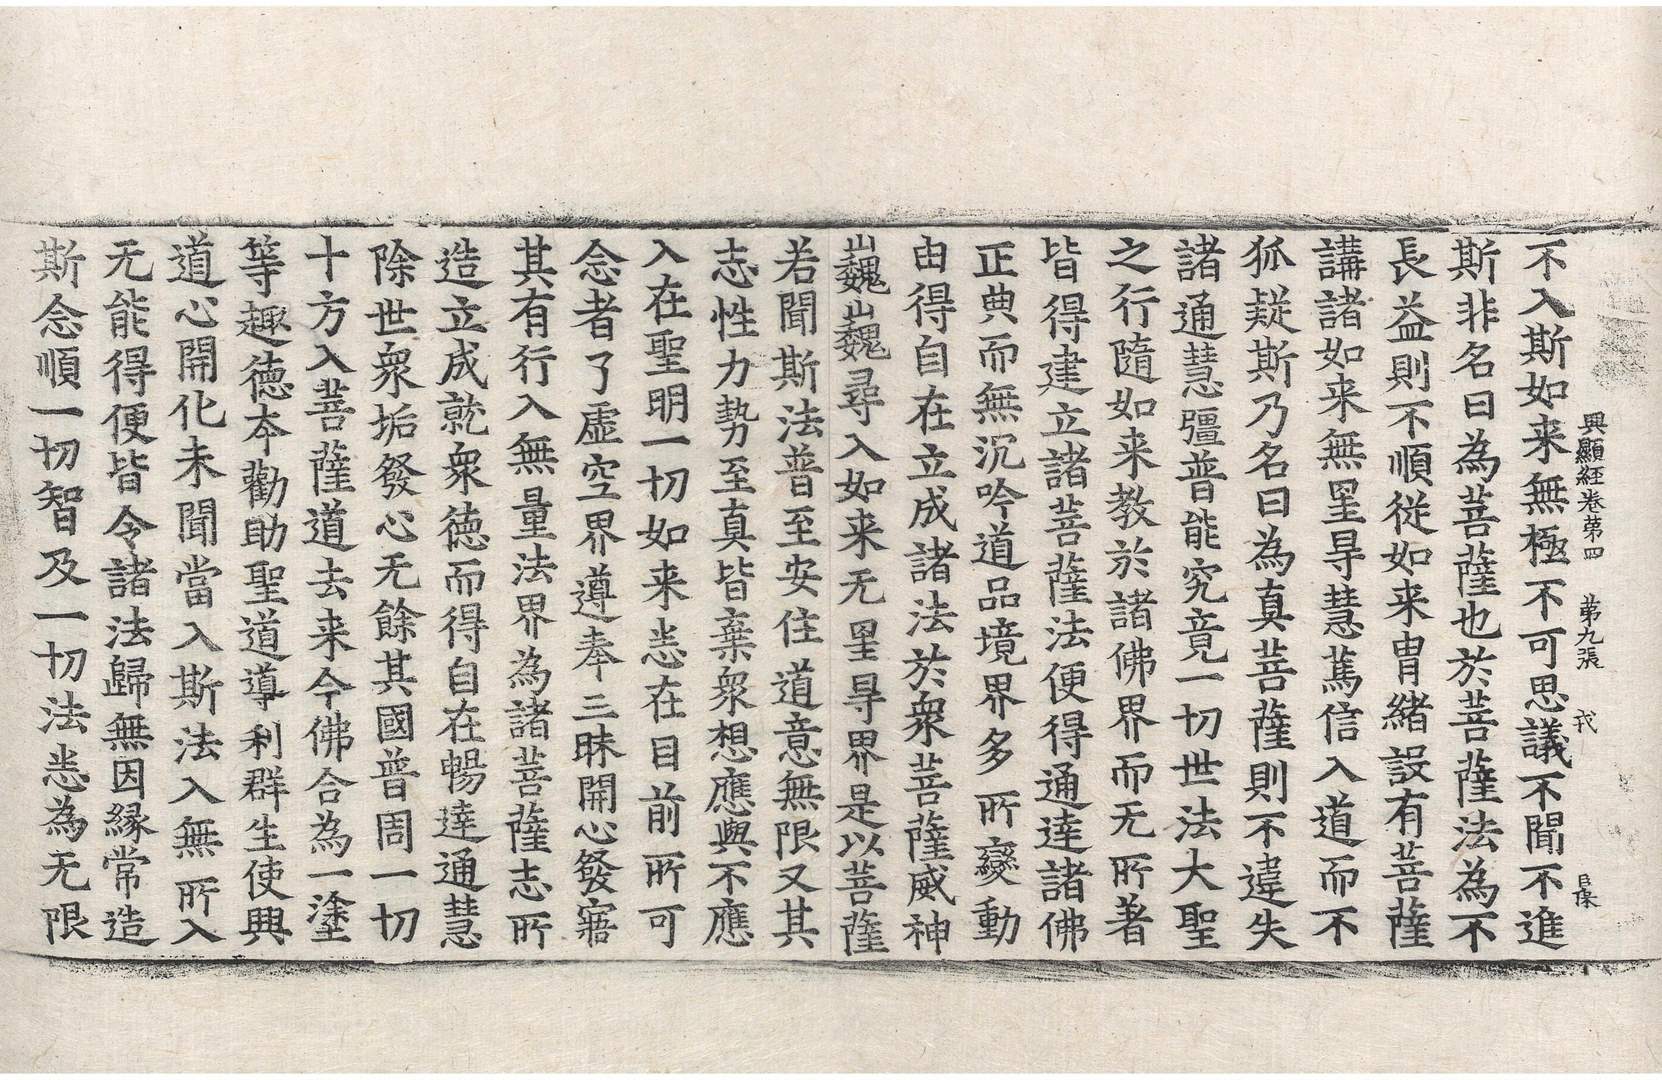 興顯經卷第四　第九張　戎
不入斯如来無極不可思議不聞不進
斯非名曰為菩薩也於菩薩法為不
長益則不順従如来胄緒設有菩薩
講諸如来無罣㝵慧篤信入道而不
狐疑斯乃名曰為真菩薩則不違失
諸通慧彊普能究竟一切世法大聖
之行隨如来教於諸佛界而无所著
皆得建立諸菩薩法便得通達諸佛
正典而無沉吟道品境界多所變動
由得自在立成諸法於衆菩薩威神
巍巍尋入如来无罣㝵界是以菩薩
若聞斯法普至安住道意無限又其
志性力勢至真皆棄衆想應與不應
入在聖明一切如来悉在目前所可
念者了虛空界遵奉三昧開心發寤
其有行入無量法界為諸菩薩志所
造立成就衆德而得自在暢達通慧
除世衆垢發心无餘其國普周一切
十方入菩薩道去来今佛合為一塗
等趣德夲勸助聖道導利群生使興
道心開化未聞當入斯法入無所入
无能得便皆令諸法歸無因縁常造
斯念順一切智及一切法悉為无限